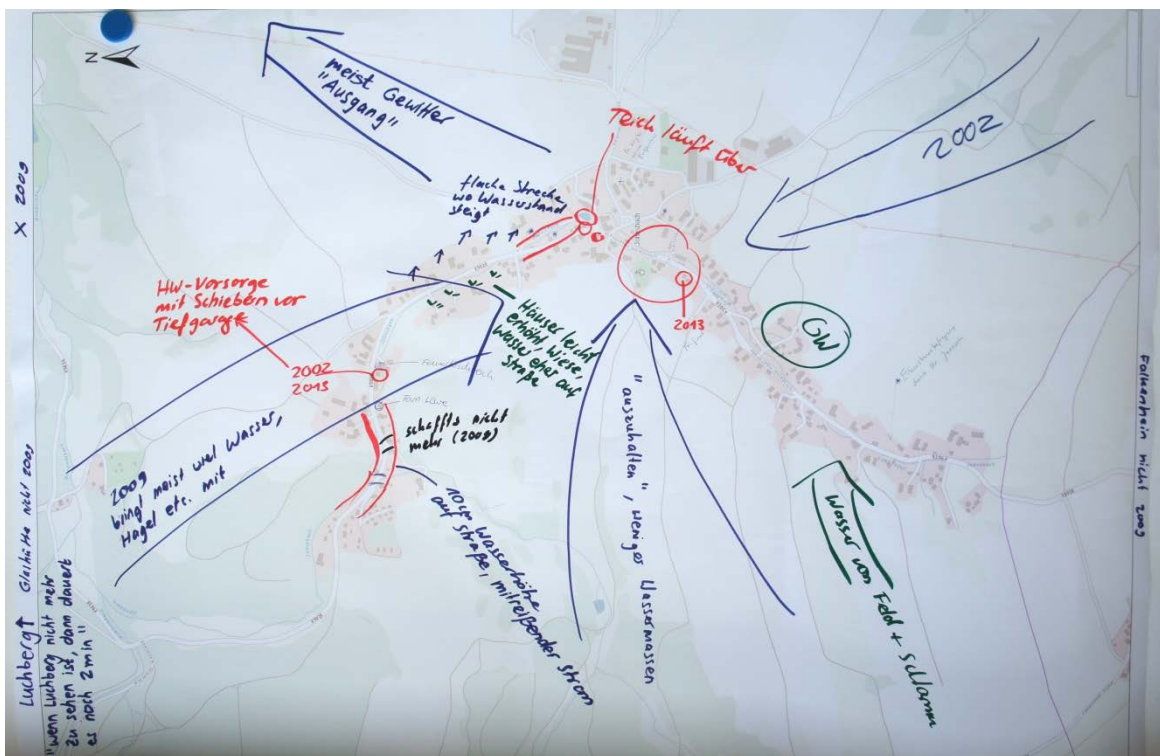 N
meist Gewitter
"Ausgang"
2002
Teich läuft über
flache Strecke,
wo Wasserstand
steigt
X 2009
HW-Vorsorge
mit Schiebern vor
Tiefgarage
2002
2013
2013
Häuser leicht
erhöht, Wiese,
Wasser eher auf
Straße
GW
schaffts nicht
mehr (2009)
2009
bringt meist viel Wasser,
Hagel etc. mit
10 cm Wasserhöhe
auf Straße, mitreißender Strom
"auszuhalten", weniger Wassermassen
Wasser von Feld + Schlamm
Falkenhein nicht 2009
Luchberg↑ Glashütte nicht 2009
"wenn Luchberg nicht mehr
zu sehen ist, dann dauert
es noch 2min"